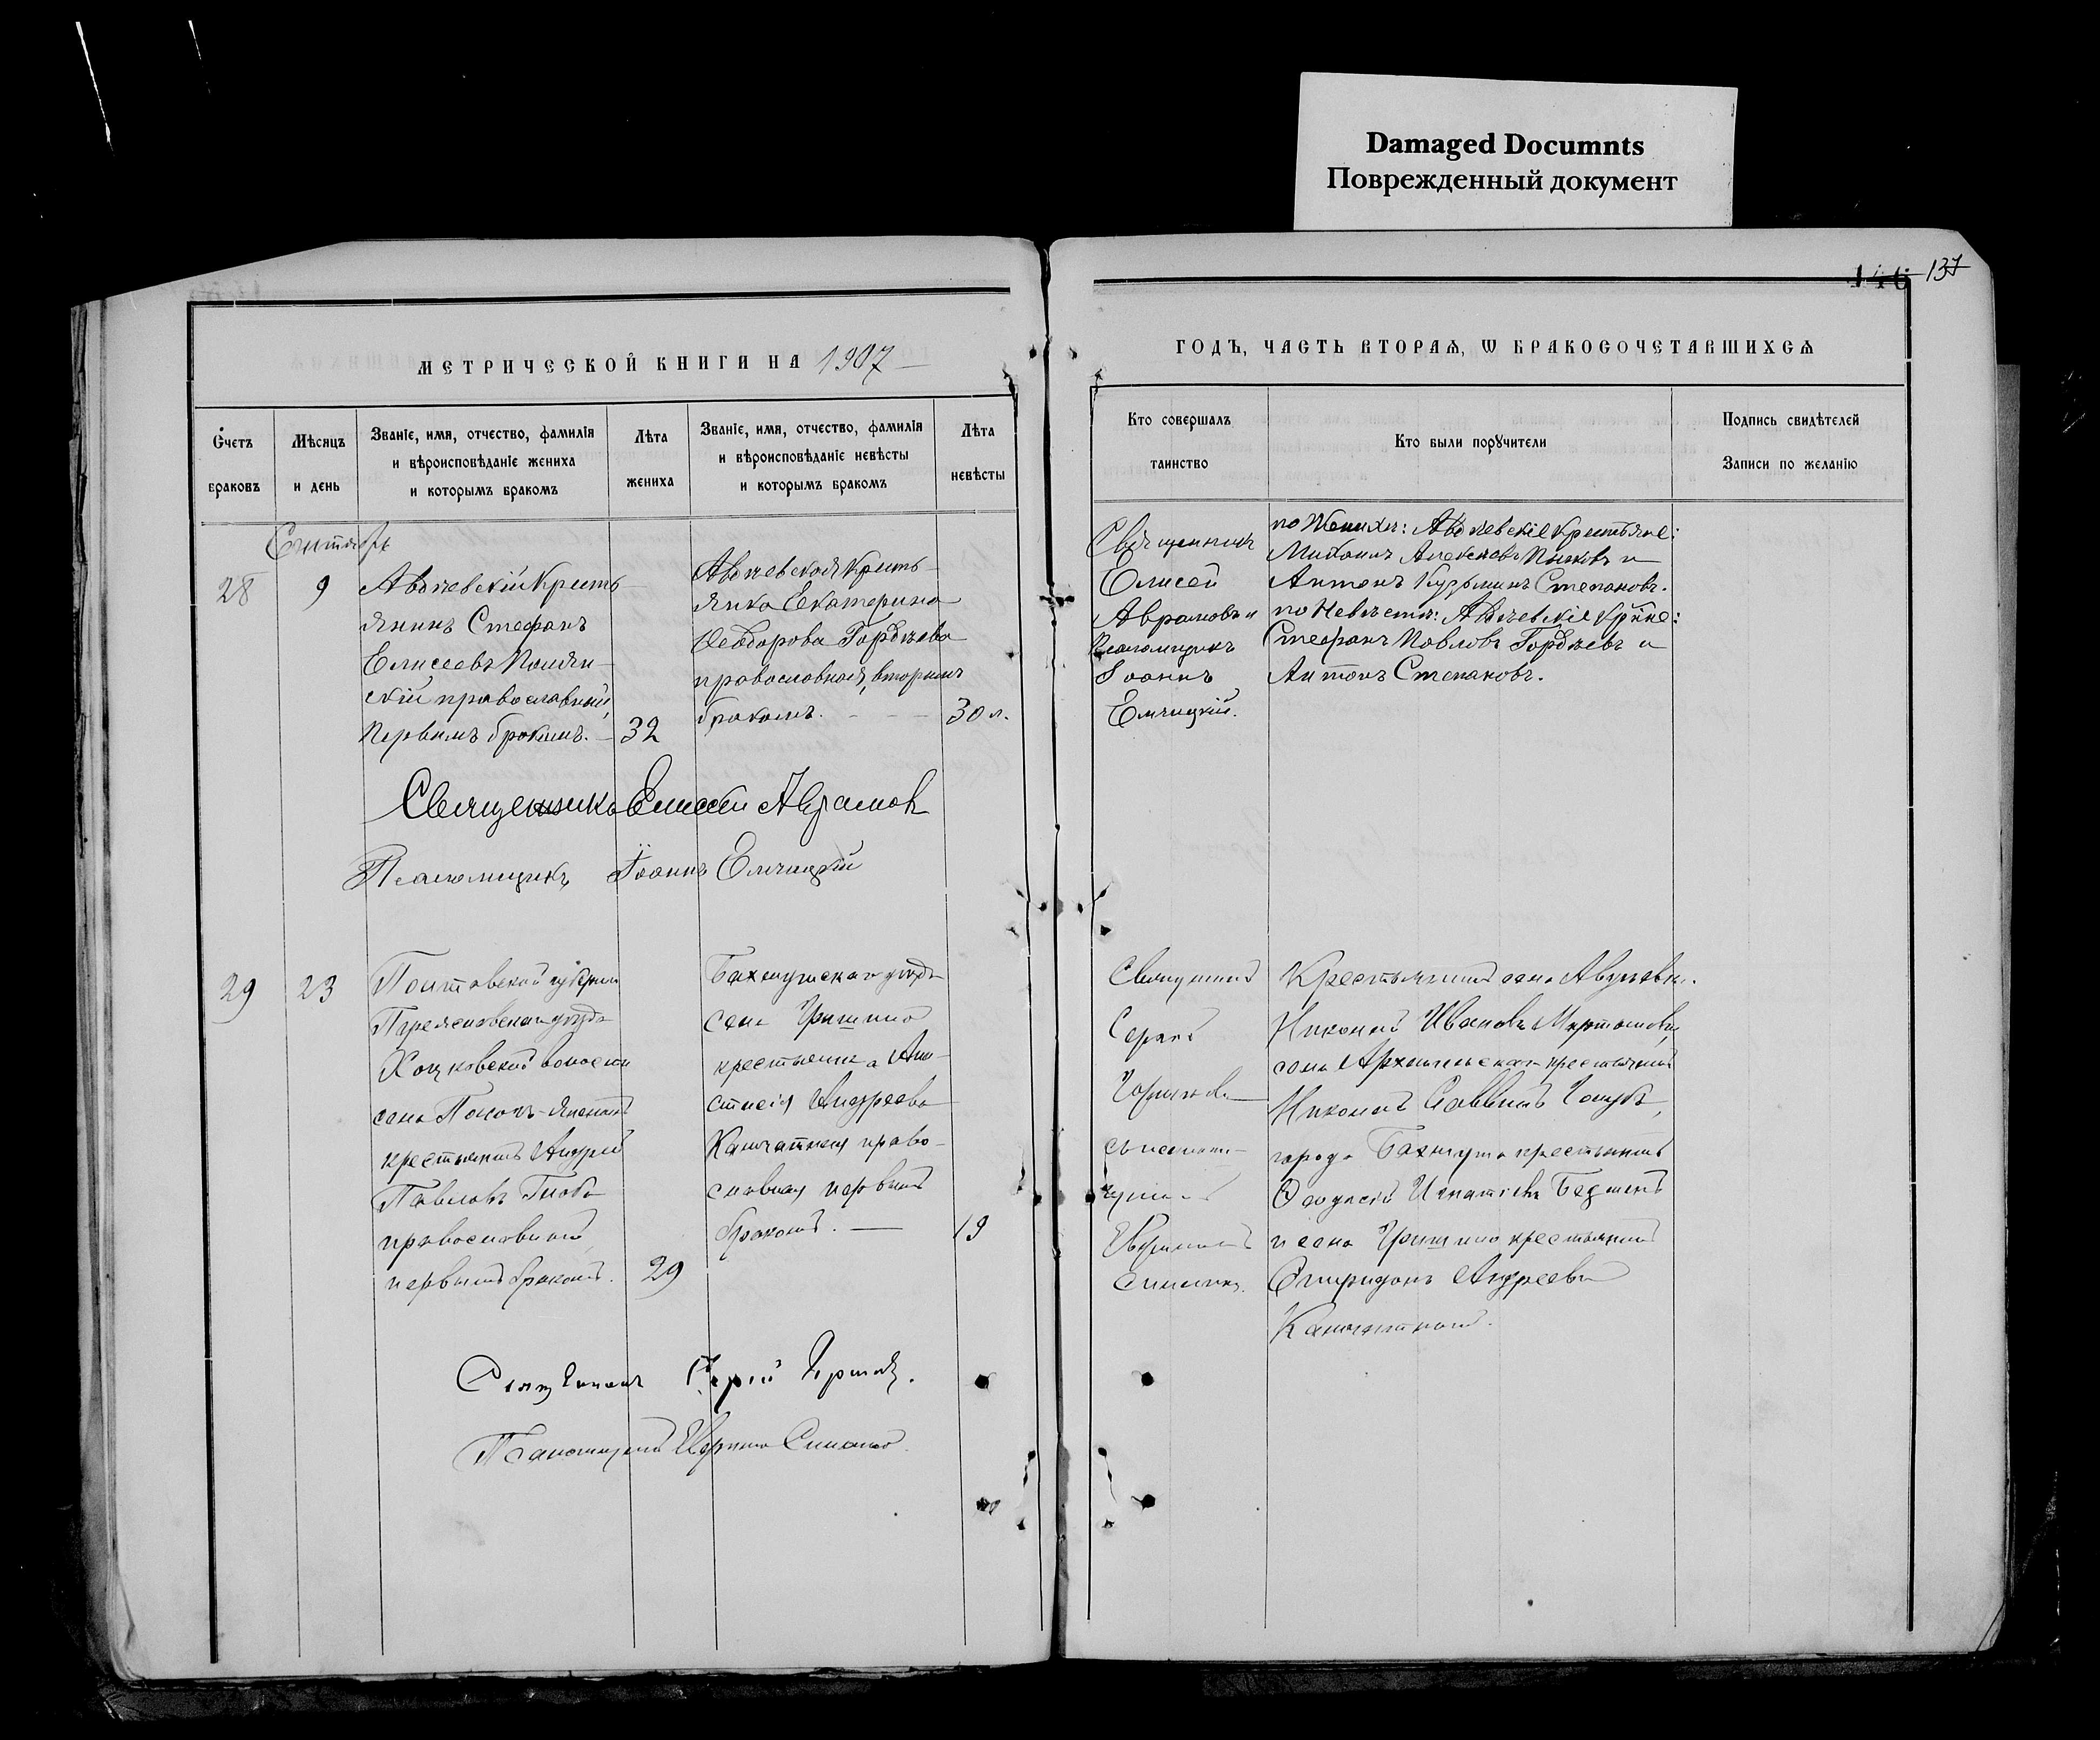 Damaged Documnts
Поврежденный документ
137
МЕТРИЧЕСКОЙ КНИГИ НА 1907
ГОДЪ, ЧАСТЬ ВТОРАЯ, Ѡ БРАКОСОЧЕТАВШИХСѦ
Счетъ
браковъ
Мѣсяцъ
и день
Званіе, имя, отчество, фамилія
и вѣроисповѣданіе жениха
и которымъ бракомъ
Лѣта
жениха
Званіе, имя, отчество, фамилія
и вѣроисповѣданіе невѣсты
и которымъ бракомъ
Лѣта
невѣсты
Кто совершалъ
таинство
Кто были порꙋчители
Подпись свидѣтелей
Записи по желанію
Сентябрь
28
9
Авдѣевскій Кресть-
янинъ Стефанъ
Елисеевъ
скій православный,
первымъ бракомъ. —
32
Авдѣевская Кресть-
янка Екатерина
Ѳеодорова Гордѣева
православная, вторымъ
бракомъ. - - -
30 л.
Священникъ
Елисей
Аврамовъ и
Псаломщикъ
Іоаннъ
Емчицкій.
по Женихѣ: Авдѣевскіе Крестьяне:
Михаилъ Алексѣевъ и
Антонъ Кузьминъ Степановъ.
по Невѣстѣ: Авдѣевскіе Кр-не:
Стефанъ Павловъ Гордѣевъ и
Антонъ Степановъ.
Священникъ Елисей Аврамовъ
Псаломщикъ Іоаннъ Емчицкій
29
23
Полтавской губерніи
Переяславскаго уѣзда
Хоцковской волости
села
крестьянинъ Андрей
Павловъ Глоба
православный,
первымъ бракомъ.
29
Бахмутскаго уѣзда
села Гришино
крестьянка Ана-
стасія Андреева
Камчатная право-
славная первымъ
бракомъ. —
19
Священникъ
Сергій
Горяиновъ
съ псалом-
щикомъ
Симоном.
Крестьянинъ села Авдѣевки
Николай Ивановъ
села Архангельскаго крестьянинъ
Николай Саввинъ Голубъ,
города Бахмута крестьянинъ
Ѳеодосій Игнатіевъ
и села Гришино крестьянинъ
Спиридонъ Андреевъ
Камчатный.
Священникъ Сергій
Псаломщикъ